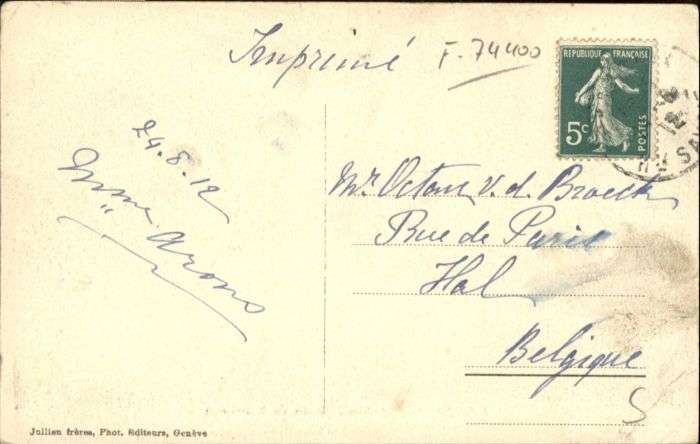 Imprimé
F. 74400
REPUBLIQUE FRANÇAISE
5c
POSTES
24.8.12
Mme Arons
Mr. Octave v. d. Broeck
Rue de Paris
Hal
Belgique
S
Jullien frères, Phot. Editeurs, Genève